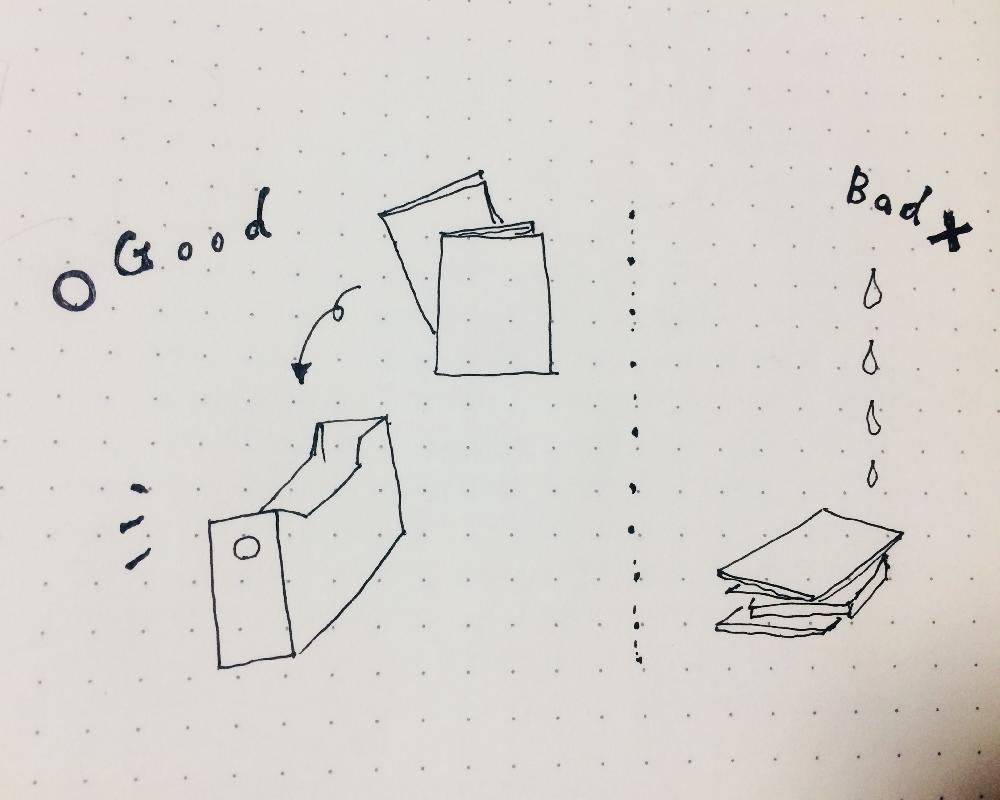 Good
Bad